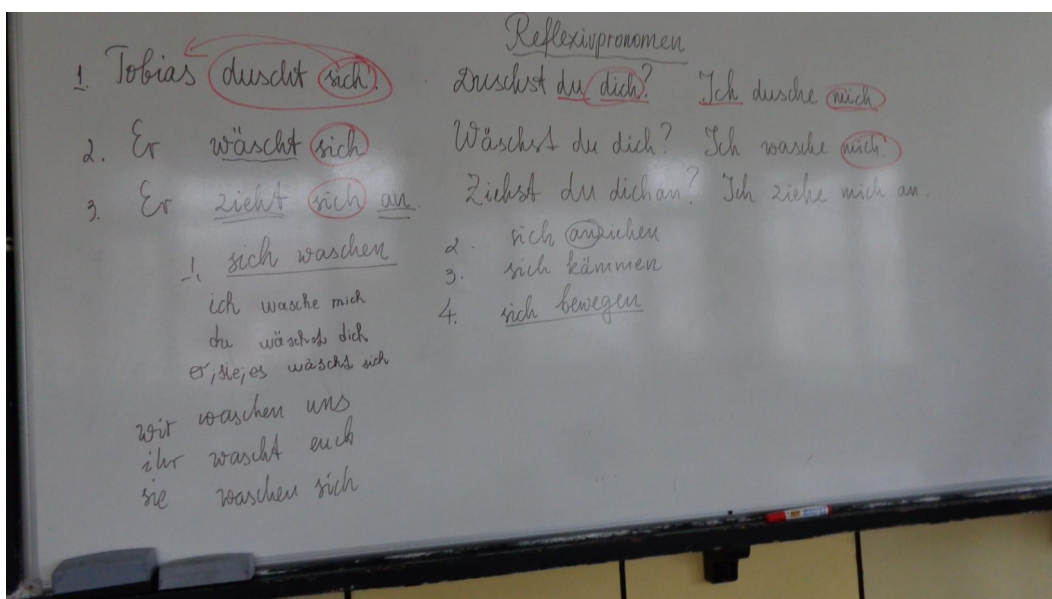 Reflexivpronomen
1. Tobias duscht sich. Duschst du dich? Ich dusche mich
2. Er wäscht sich Wäschst du dich? Ich wasche mich.
3. Er zieht sich an. Ziehst du dich an? Ich ziehe mich an.
1. sich waschen
ich wasche mich
du wäschst dich
er, sie, es wäscht sich
wir waschen uns
ihr wascht euch
sie waschen sich
2. sich anziehen
3. sich kämmen
4. sich bewegen